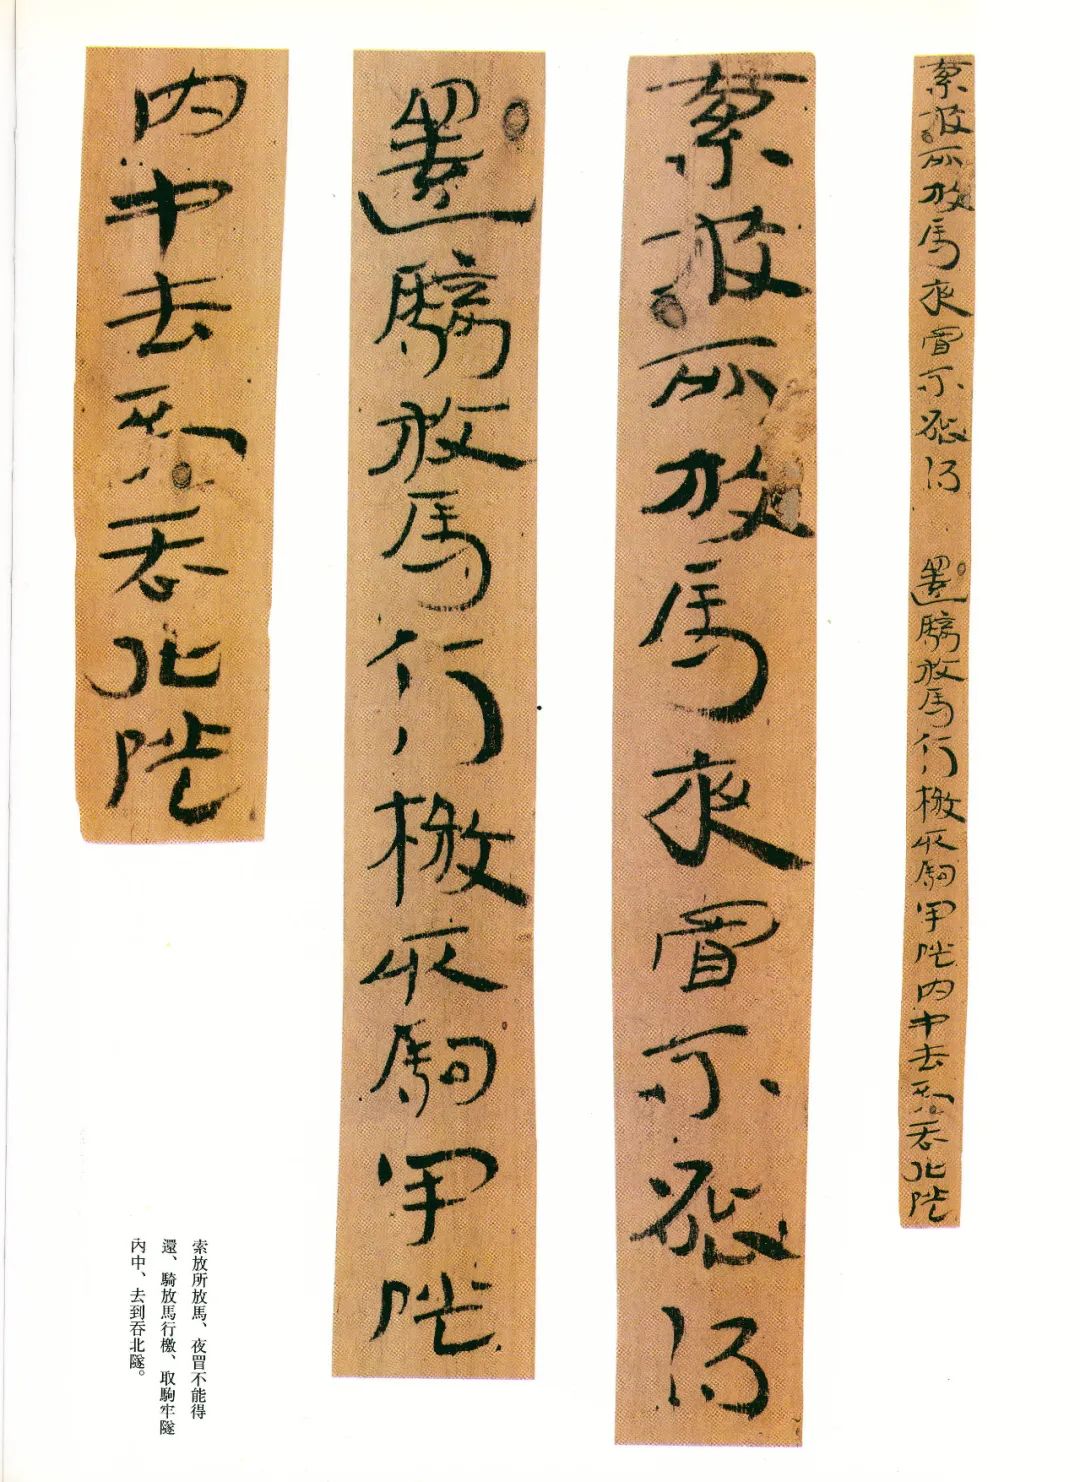 索放所放馬夜冒不能得 還騎放馬行檄取駒牢隧內中去到吞北隧
索放所放馬夜冒不能得
還騎放馬行檄取駒牢隧
內中去到吞北隧
索放所放馬、夜冒不能得
還、騎放馬行檄、取駒牢隧
內中、去到吞北隧。